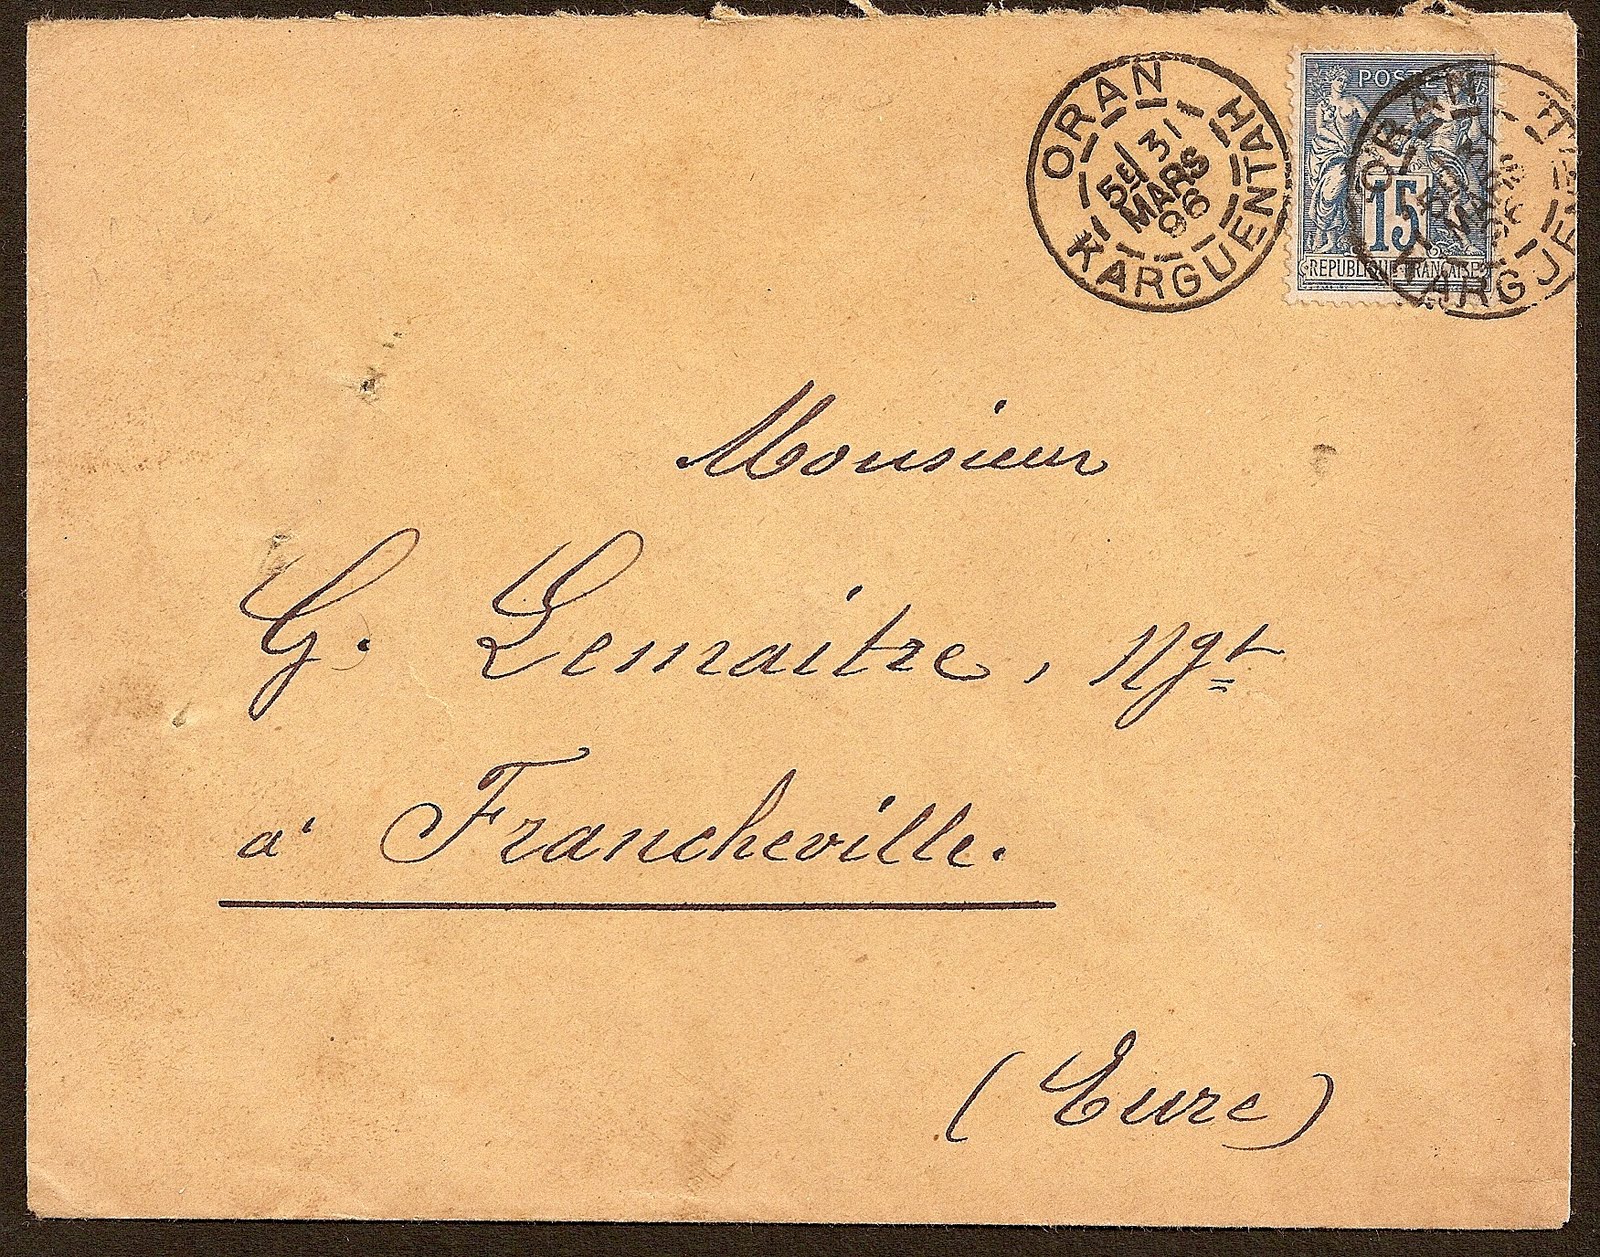 ORAN
5E/ 31
MARS
96
KARGUENTAH
POSTES
15
REPUBLIQUE FRANCAISE
ORAN
31
MARS
96
KARGUENT
Monsieur
G. Lemaitre, Ngt
à Francheville.
(Eure)